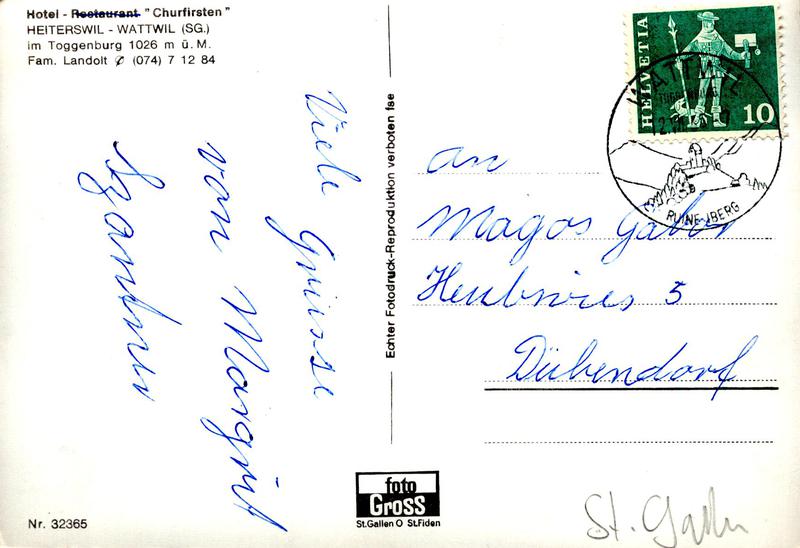 Hotel - Restaurant "Churfirsten"
HEITERSWIL - WATTWIL (SG.)
im Toggenburg 1026 m ü. M.
Fam. Landolt ✆ (074) 7 12 84
Viele Grüsse
von Margrit
Echter Fotodruck-Reproduktion verboten fse
HELVETIA
10
WATTWIL
RUINE IBERG
an
Magos Gabor
5
Dübendorf
foto
Gross
St.Gallen O St.Fiden
Nr. 32365
St. Gallen